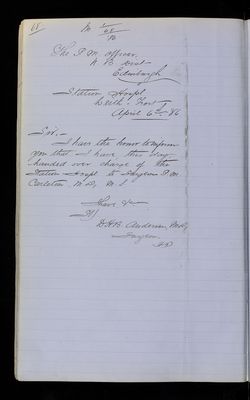 68
M
86
The P.M. officer,
N. B. Dist
Edinburgh
Station Hospl
Leith Fort
April 6th 86
Sir,-
I have the honor to inform
you that I have this day
handed over charge of the
Station Hospl to Surgeon P.M.
Carleton M.D, M.S
I have &c
D.H.B. Anderson, M.B,
Surgeon